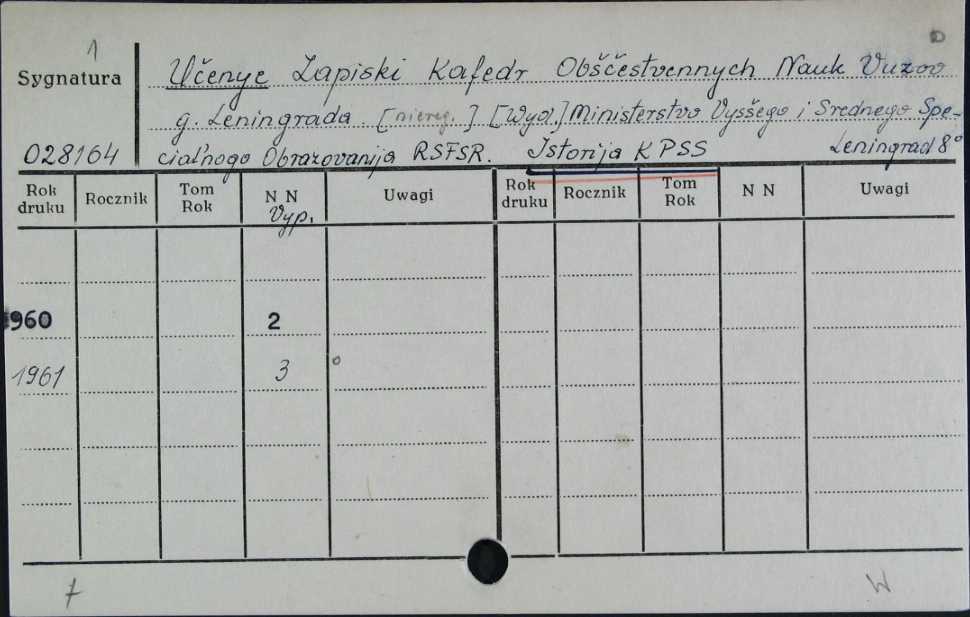 1
Sygnatura
Učenye Zapiski Kafedr Obščestvennych Nauk Vuzov
g. Leningrada. [niereg.] [Wyd.] Ministerstvo Vysšego i Srednego Spe-
028164 cial'nogo Obrazovanija RSFSR. Istorija KPSS Leningrad 8°
Rok druku Rocznik Tom Rok N N Vyp. Uwagi Rok druku Rocznik Tom Rok N N Uwagi
960 2
1961 3 o
7 W